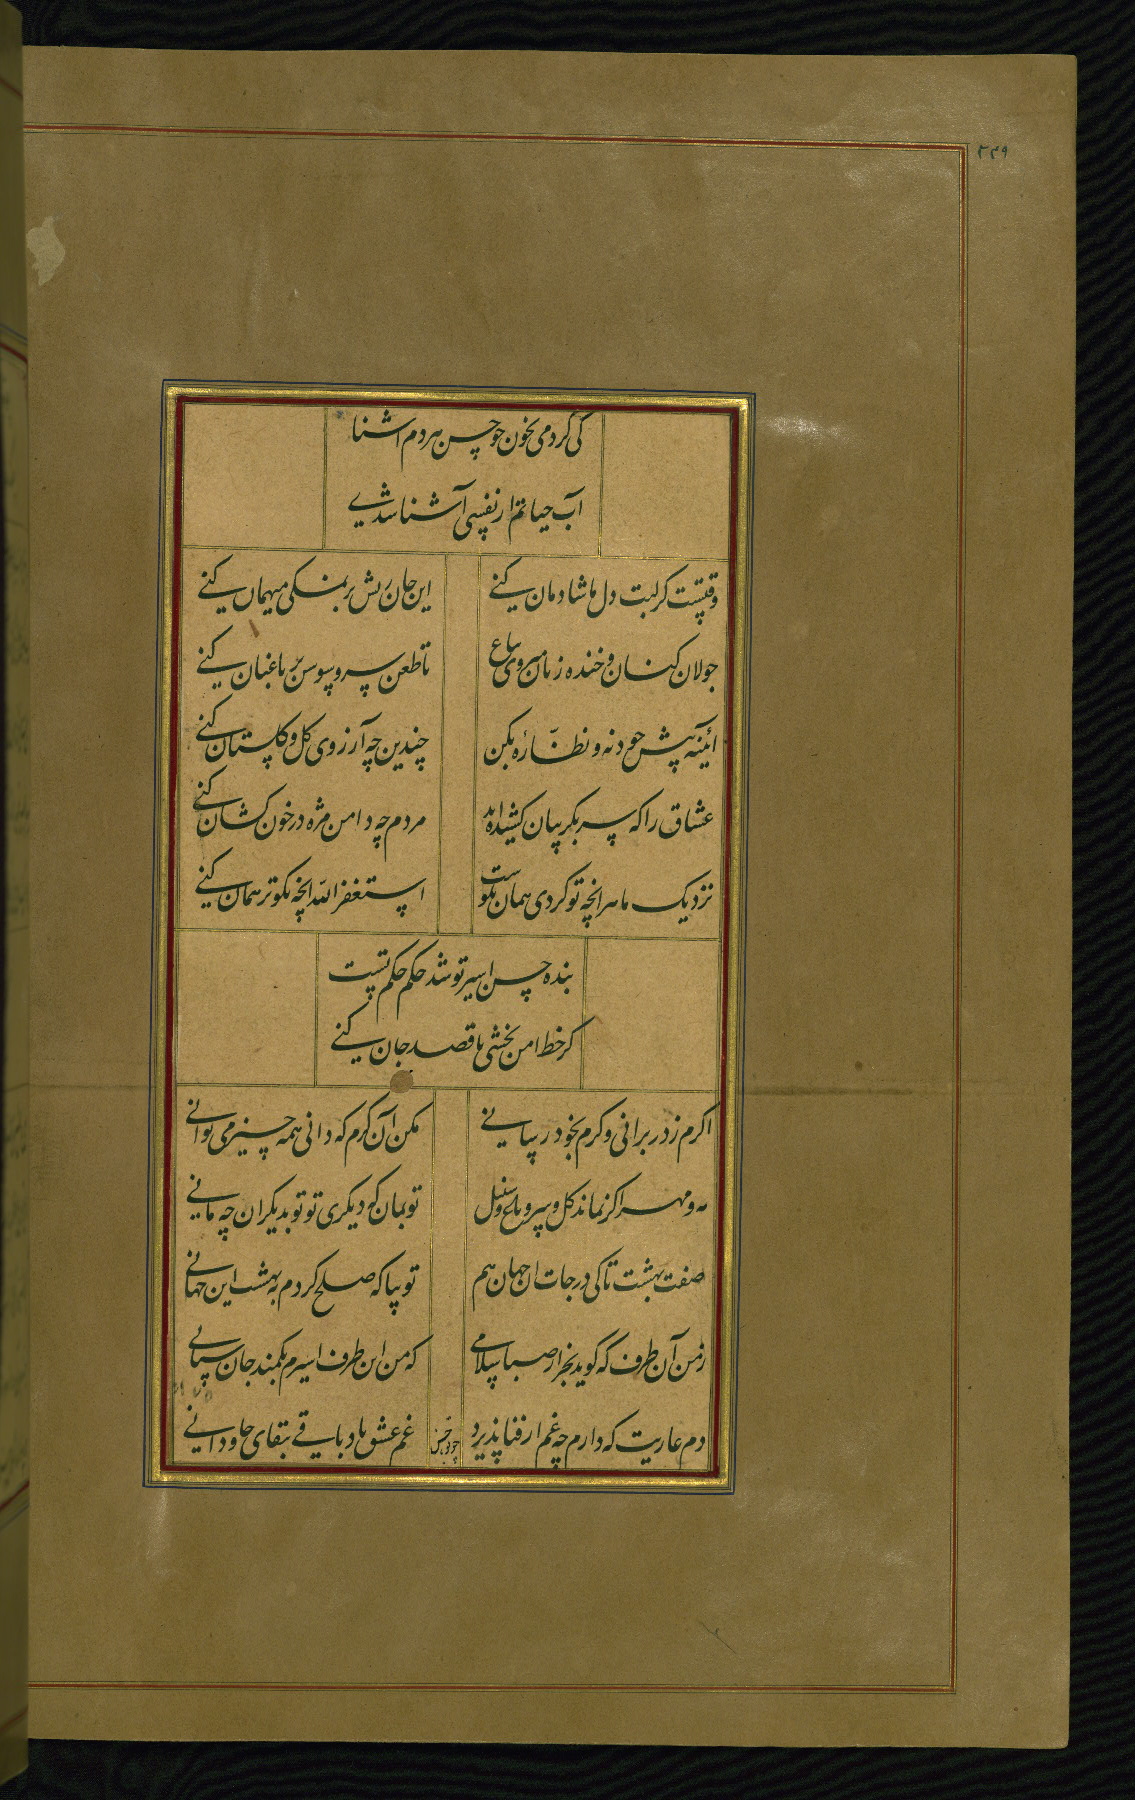 ۲۴۹
کی کردمی بخون چو حسن هر دم آشنا
آب حیاتم ار نفسی آشنا شدی
وقتست کز لبت دل ما شادمان کنی
این جان ریش بر نمکی میهمان کنی
جولان کنان و خنده زنان میروی بباغ
تا طعن سرو و سوسن بر باغبان کنی
آئینه پیش خود نه و نظاره بکن
چندین چه آرزوی کل و کلستان کنی
عشاق را که سر بکریبان کشیده‌اند
مردم چه دامن مژه در خون کشان کنی
نزدیک ما هر انچه تو کردی همان نکوست
استغفر الله انچه نکوتر همان کنی
بنده حسن اسیر تو شد حکم حکم تست
کر خط امن بخشی یا قصد جان کنی
اکرم ز در برانی و کرم بخود رسانی
مکن آن کرم که دانی همه چیز می توانی
مه و مهر اکر نماند کل و سرو و باغ و سنبل
تو بمان که دیکری تو تو بدیکران چه مانی
صفت بهشت تا کی درجات ان جهان هم
تو بیا که صلح کردم به بهشت این جهانی
ز من آن طرف که کوید بجز از صبا سلامی
که من این طرف اسیرم بکمند جان ستانی
دم عاریت که دارم چه غم ار فنا پذیرد
غم عشق باد باقی بقای جاودانی
چو حسن